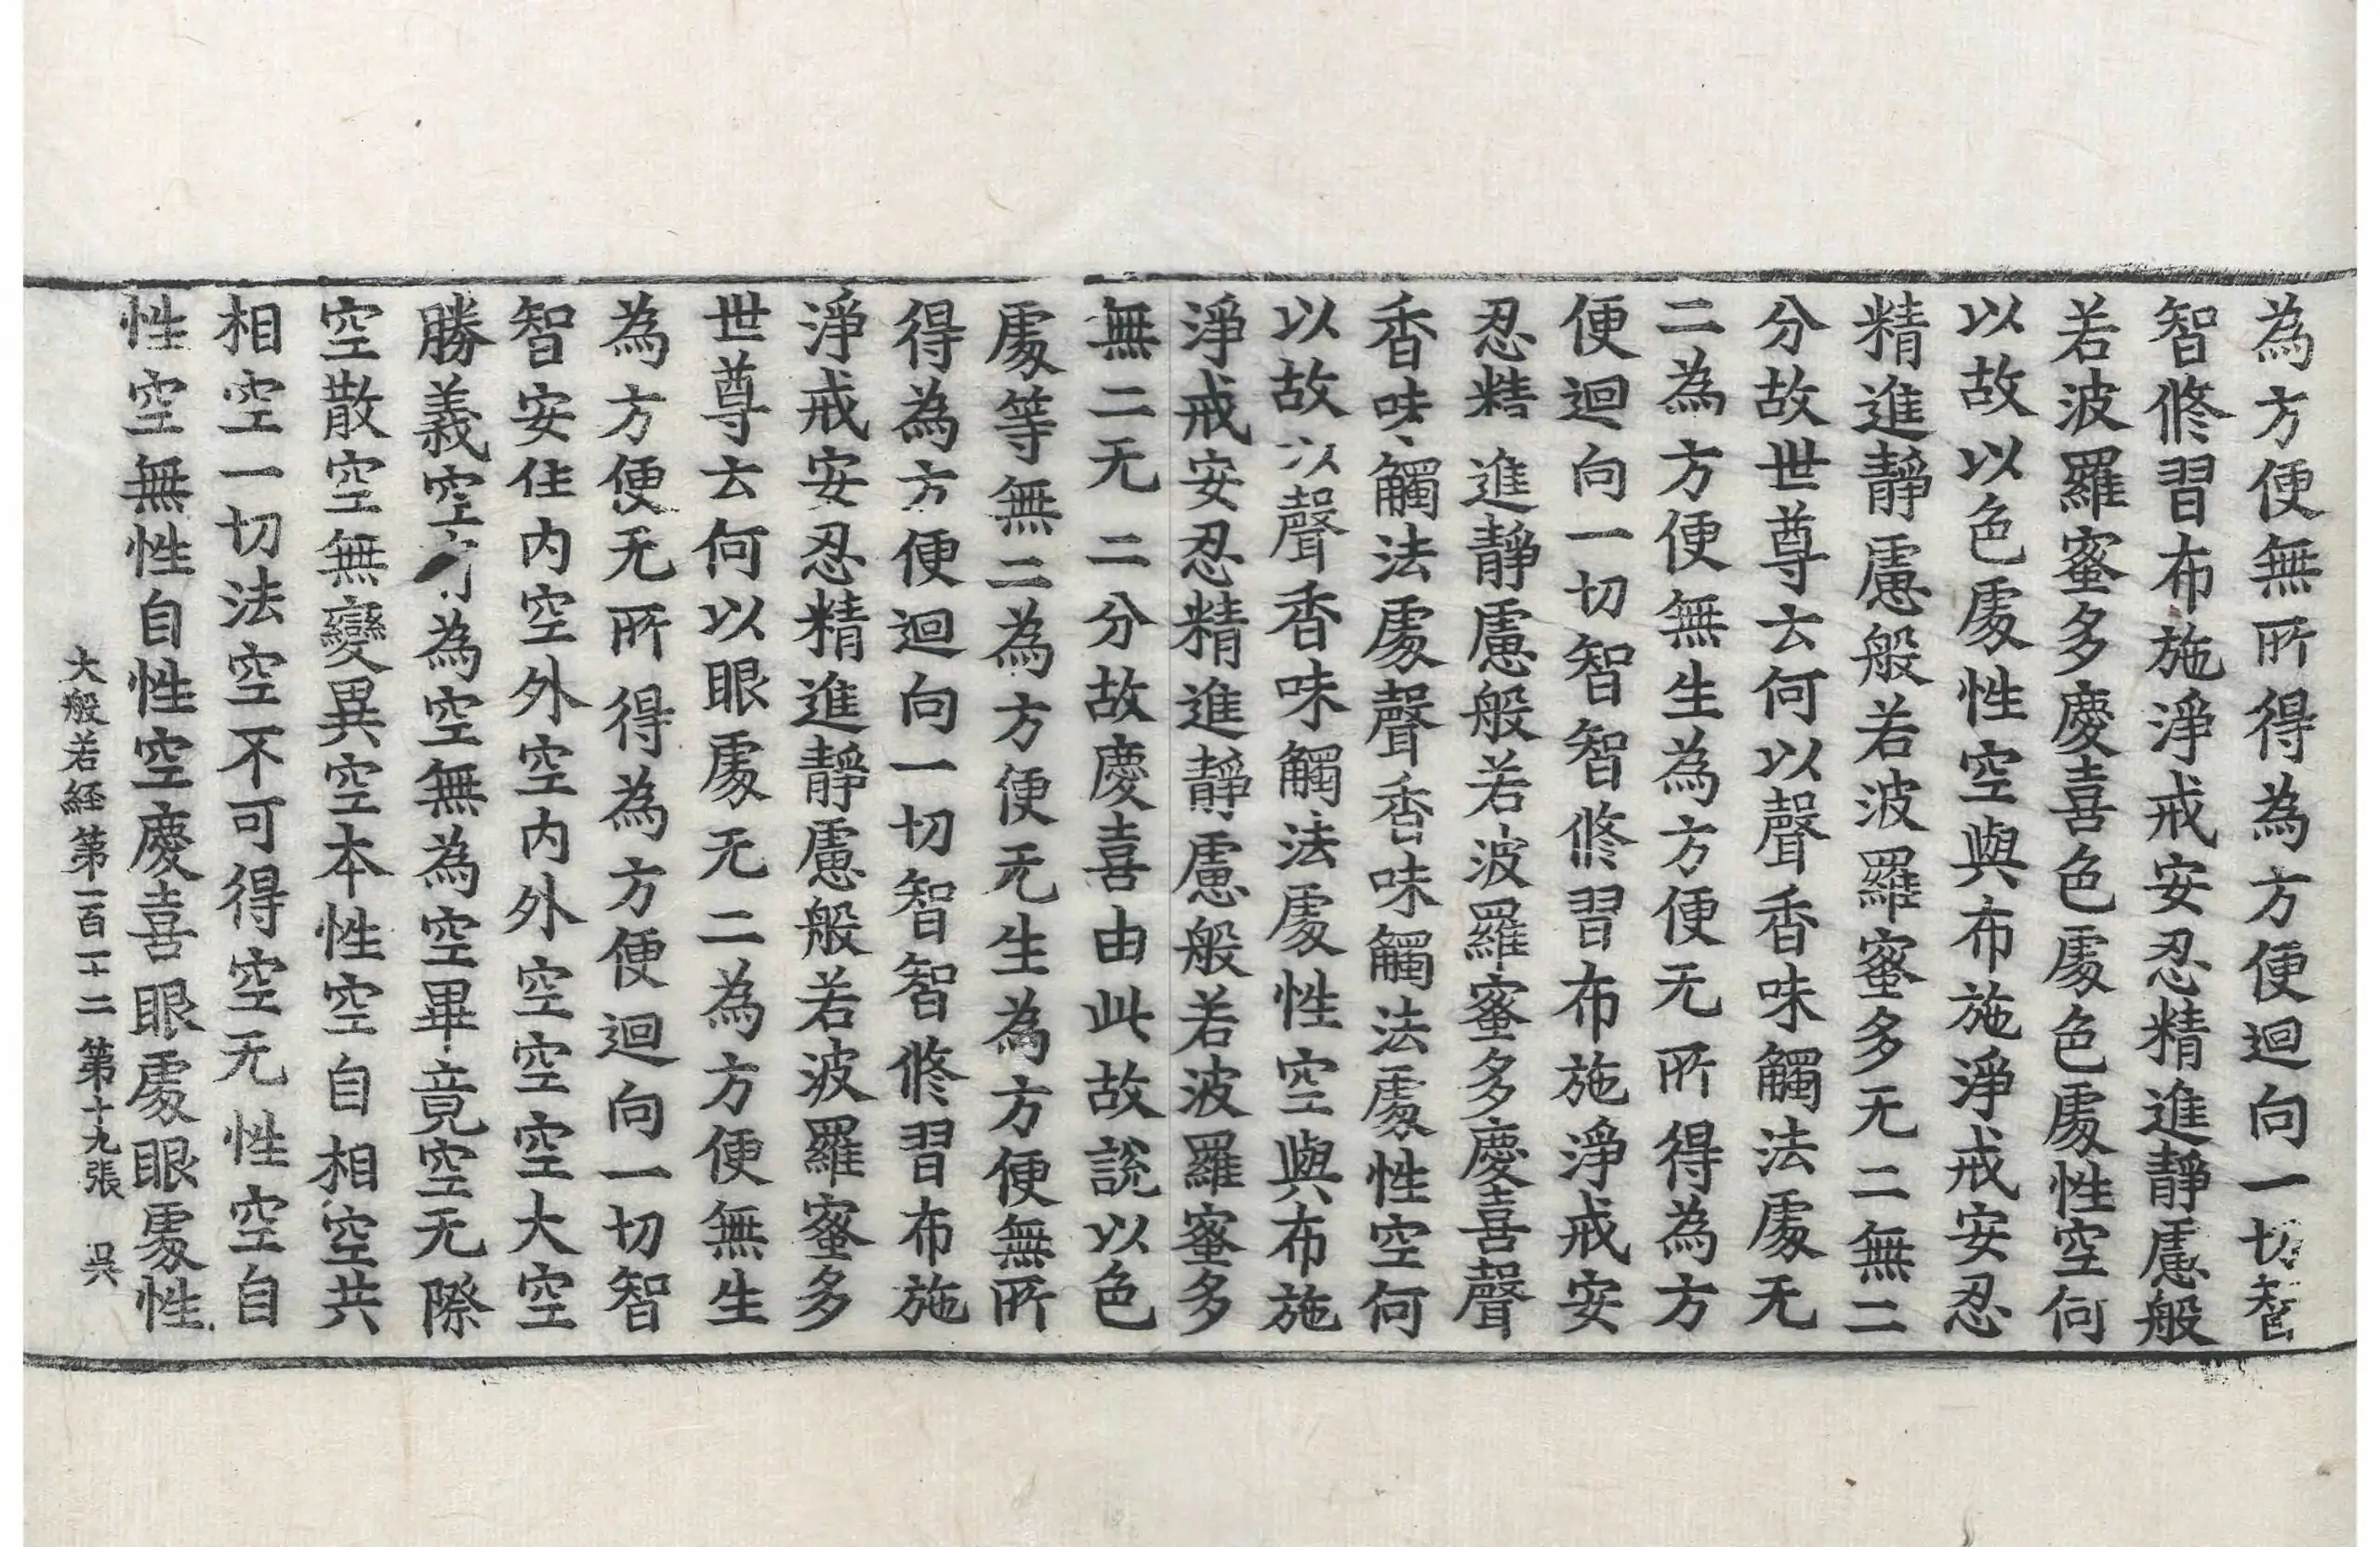 為方便無所得為方便迴向一切智
智修習布施淨戒安忍精進靜慮般
若波羅蜜多慶喜色處色處性空何
以故以色處性空與布施淨戒安忍
精進靜慮般若波羅蜜多无二無二
分故世尊云何以聲香味觸法處无
二為方便無生為方便无所得為方
便迴向一切智智修習布施淨戒安
忍精進靜慮般若波羅蜜多慶喜聲
香味觸法處聲香味觸法處性空何
以故以聲香味觸法處性空與布施
淨戒安忍精進靜慮般若波羅蜜多
無二无二分故慶喜由此故說以色
處等無二為方便无生為方便無所
得為方便迴向一切智智修習布施
淨戒安忍精進靜慮般若波羅蜜多
世尊云何以眼處无二為方便無生
為方便无所得為方便迴向一切智
智安住内空外空内外空空空大空
勝義空為空無為空畢竟空无際
空散空無變異空本性空自相空共
相空一切法空不可得空无性空自
性空無性自性空慶喜眼處眼處性
大般若経第一百一十二 第十九張 吳